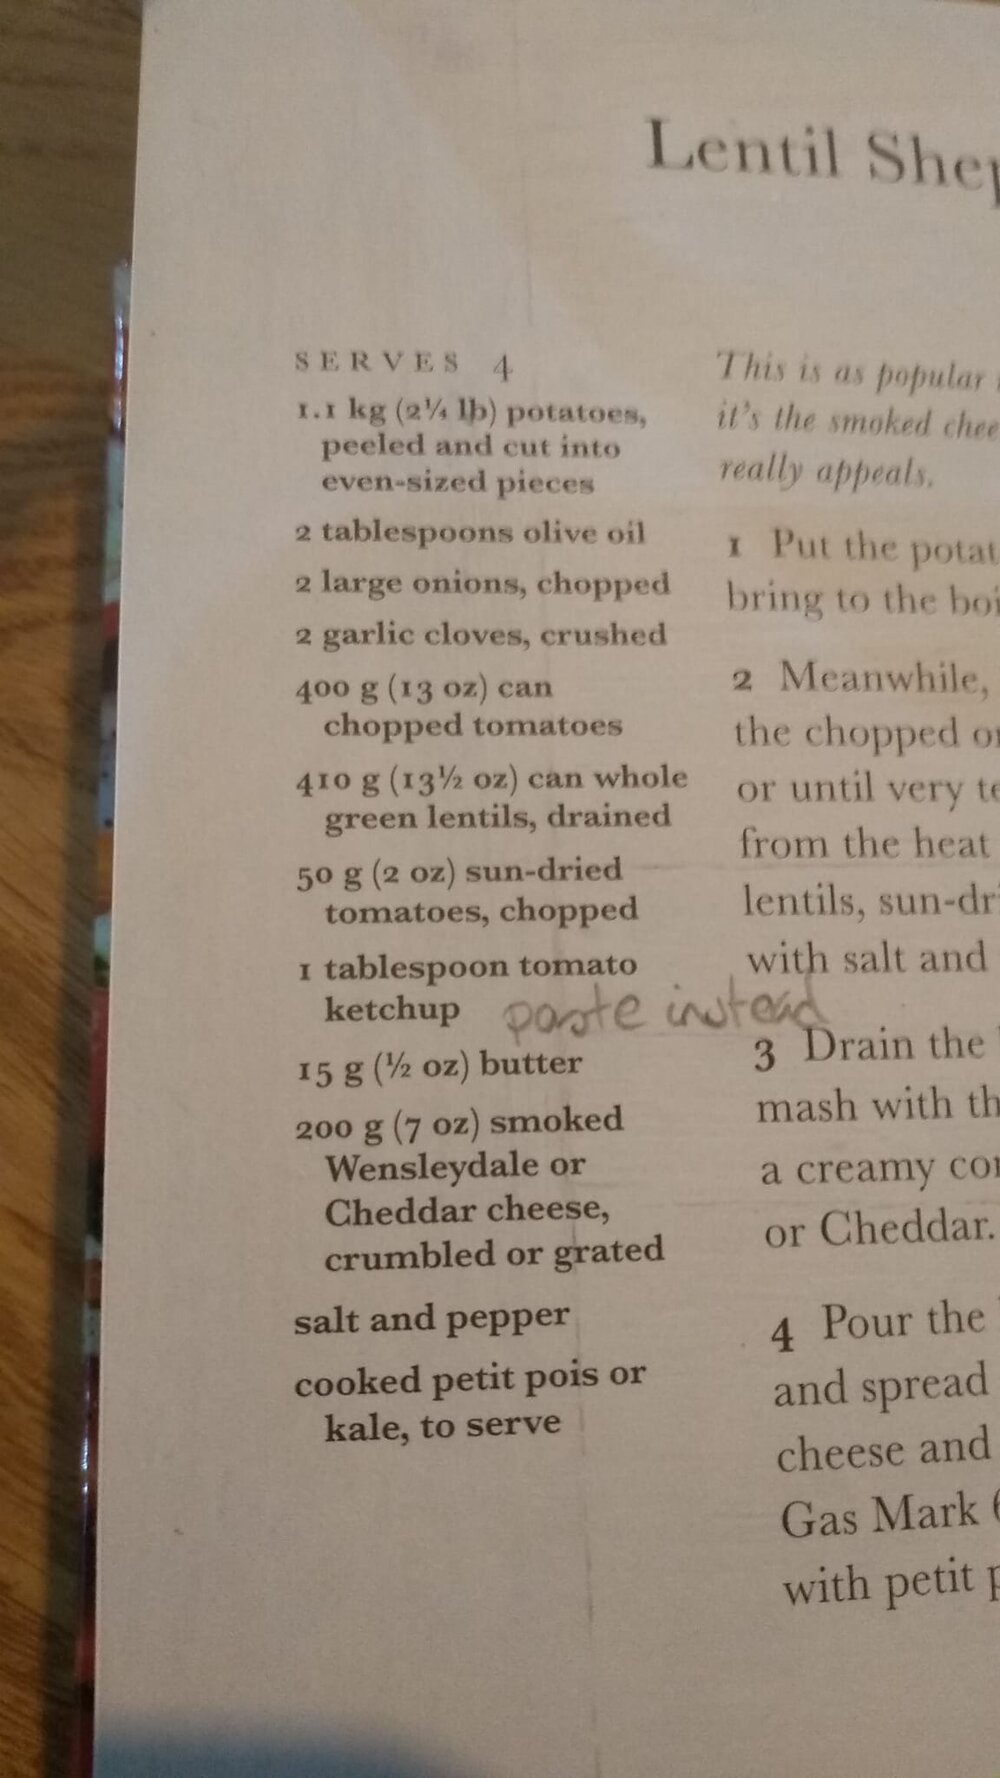 Lentil Shep
SERVES 4
1.1 kg (2¼ lb) potatoes,
peeled and cut into
even-sized pieces
2 tablespoons olive oil
2 large onions, chopped
2 garlic cloves, crushed
400 g (13 oz) can
chopped tomatoes
410 g (13½ oz) can whole
green lentils, drained
50 g (2 oz) sun-dried
tomatoes, chopped
1 tablespoon tomato
ketchup paste instead
15 g (½ oz) butter
200 g (7 oz) smoked
Wensleydale or
Cheddar cheese,
crumbled or grated
salt and pepper
cooked petit pois or
kale, to serve
This is as popular
it's the smoked chee
really appeals.
1 Put the potat
bring to the boi
2 Meanwhile,
the chopped on
or until very te
from the heat
lentils, sun-dri
with salt and
3 Drain the
mash with th
a creamy con
or Cheddar.
4 Pour the
and spread
cheese and
Gas Mark 6
with petit p